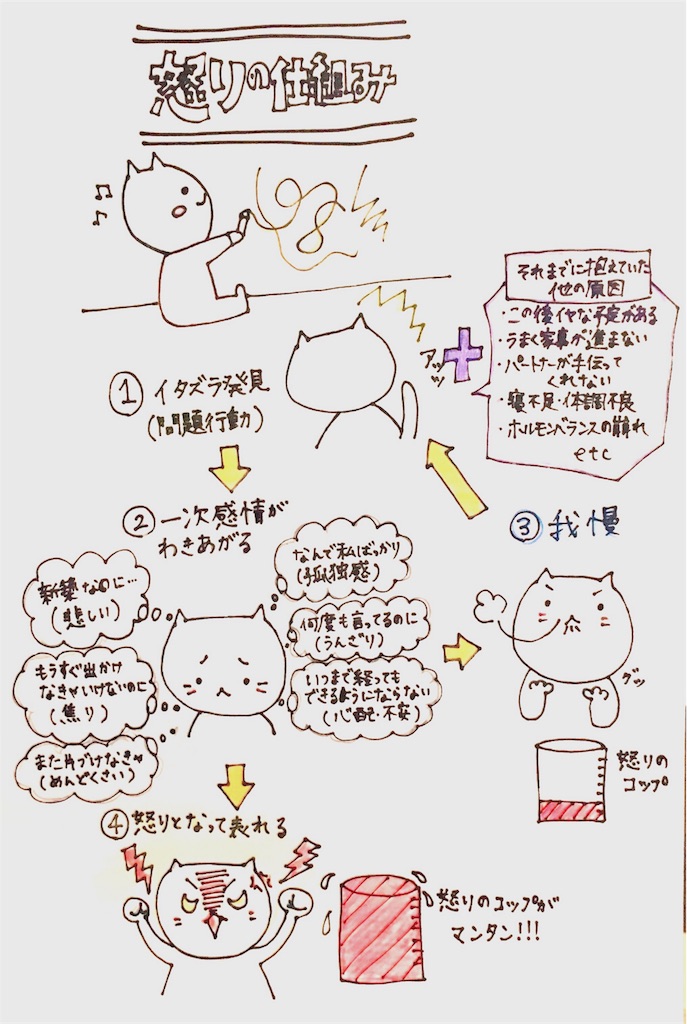 怒りの仕組み
① イタズラ発見
(問題行動)
アッッ
それまでに抱えていた
他の原因
・この後イヤな予定がある
・うまく家事が進まない
・パートナーが手伝って
くれない
・寝不足・体調不良
・ホルモンバランスの崩れ
etc
② 一次感情が
わきあがる
新築なのに…
(悲しい)
もうすぐ出かけ
なきゃいけないのに
(焦り)
また片づけなきゃ
(めんどくさい)
なんで私ばっかり
(孤独感)
何度も言ってるのに
(うんざり)
いつまで経っても
できるようにならない
(心配・不安)
③ 我慢
グッ
怒りの
コップ
④ 怒りとなって表れる
怒りのコップが
マンタン!!!